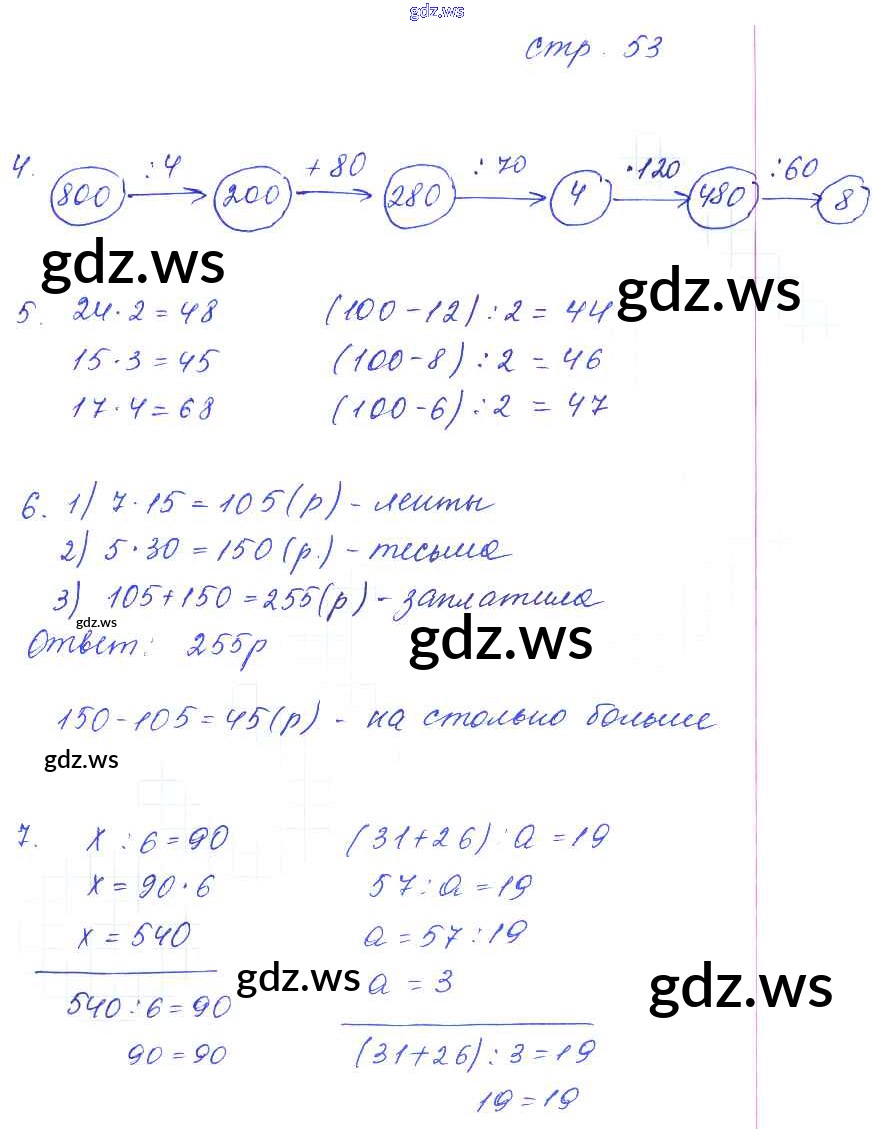 gdz.ws
стр. 53
4. 800 :4 200 +80 280 :70 4 ·120 480 :60 8
gdz.ws gdz.ws
5. 24·2=48 (100-12):2=44
15·3=45 (100-8):2=46
17·4=68 (100-6):2=47
6. 1) 7·15=105(р)-ленты
2) 5·30=150(р.)-тесьма
3) 105+150=255(р)-заплатила
gdz.ws gdz.ws
Ответ: 255р
150-105=45(р) - на столько больше
gdz.ws
7. x:6=90 (31+26):a=19
x=90·6 57:a=19
x=540 a=57:19
gdz.ws a=3 gdz.ws
540:6=90
90=90 (31+26):3=19
19=19